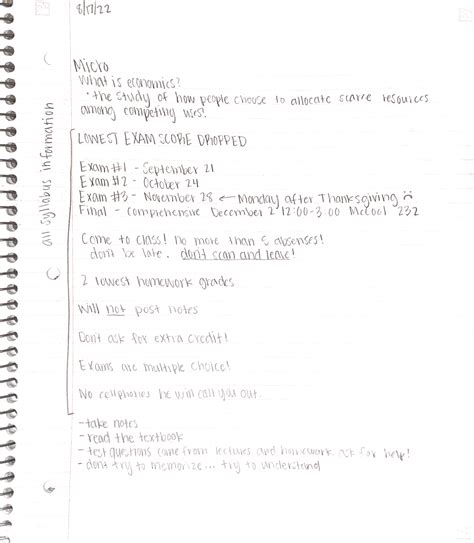 8/17/22
Micro
What is economics?
• the study of how people choose to allocate scarce resources
among competing uses!
all syllabus information
LOWEST EXAM SCORE DROPPED
Exam #1 - September 21
Exam #2 - October 24
Exam #3 - November 28 ← Monday after Thanksgiving ☹
Final - comprehensive December 2 12:00-3:00 McCool 232
Come to class! no more than absenses!
don't be late. don't scan and leave!
2 lowest homework grades
Will not post notes
Don't ask for extra credit!
Exams are multiple choice!
No cellphones he will call you out.
- take notes
- read the textbook
- test questions come from lectures and homework. ask for help!
- don't try to memorize... try to understand